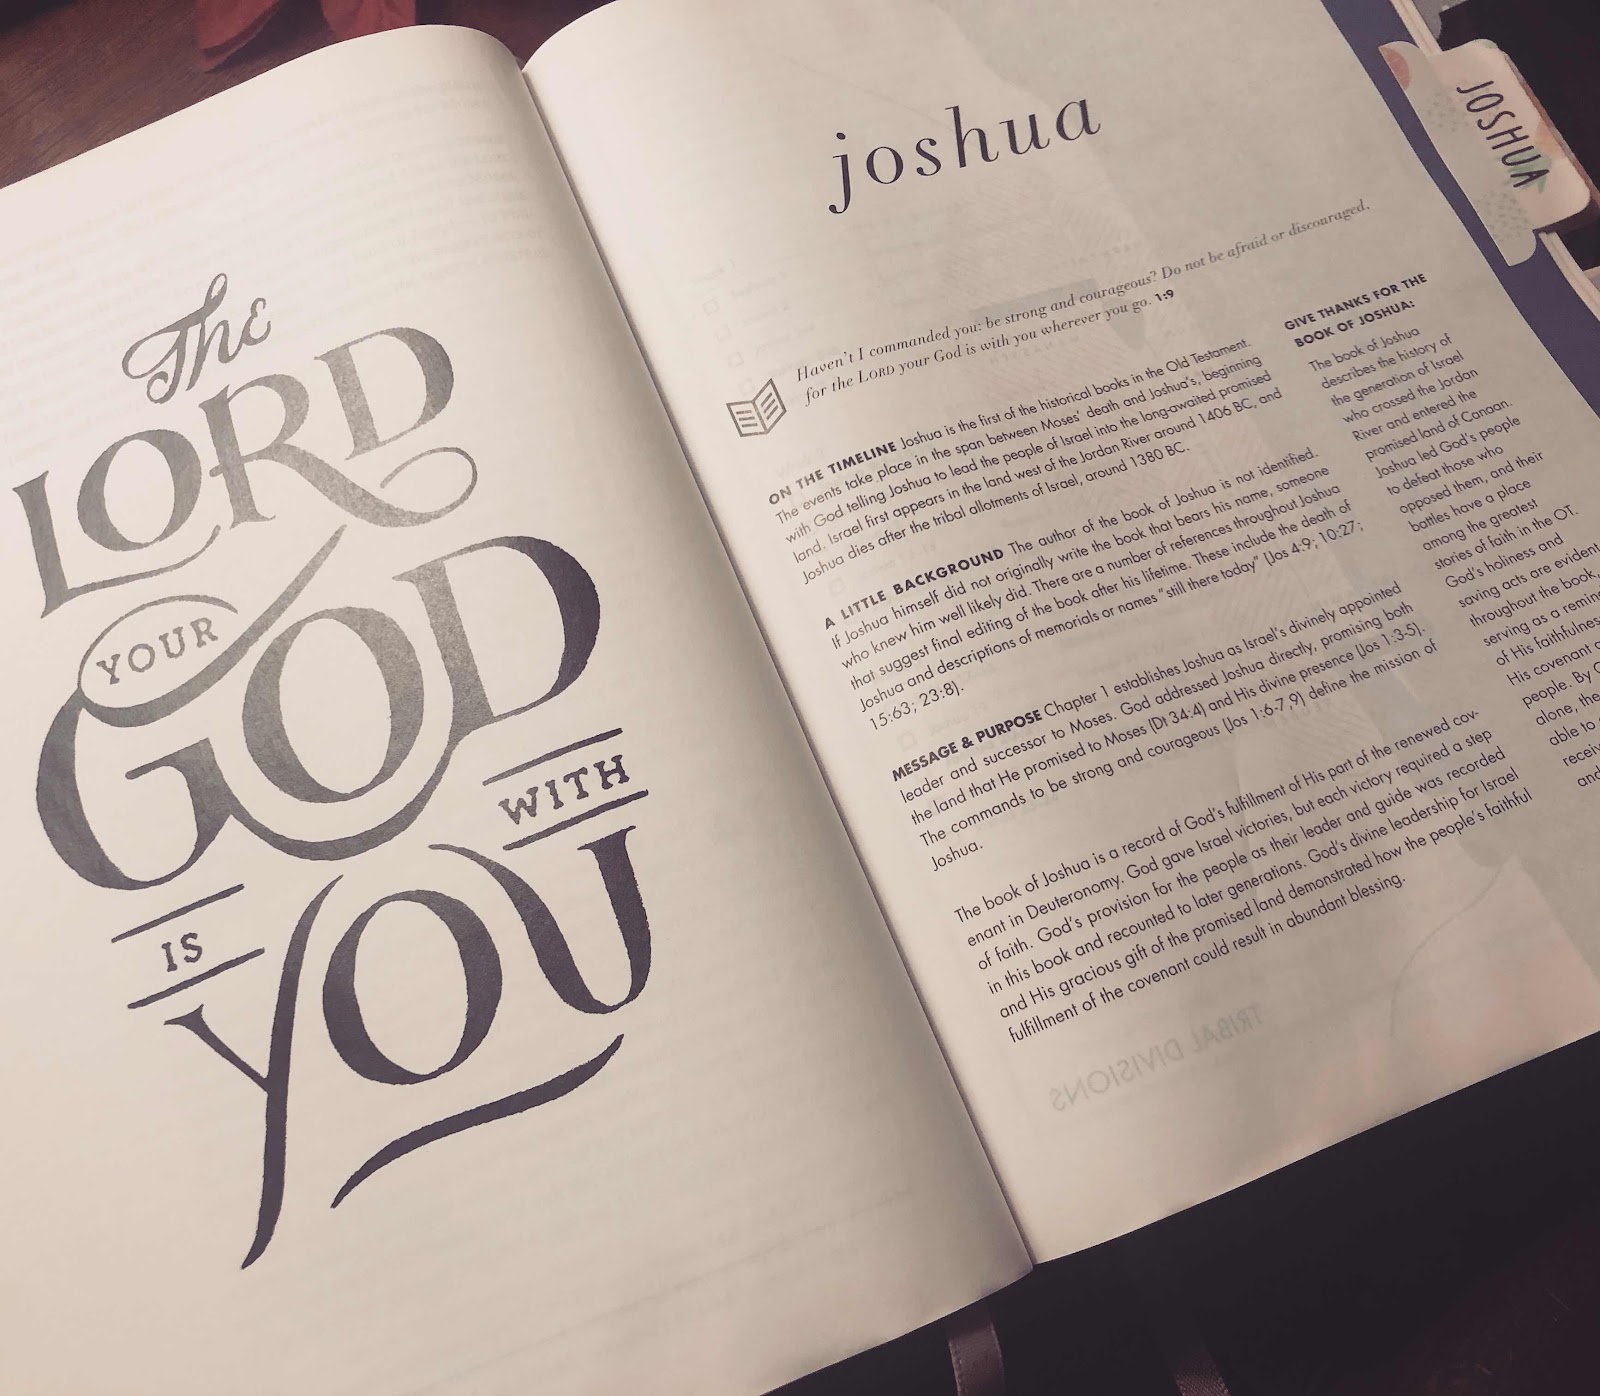 The
LORD
YOUR
GOD
IS
WITH
YOU
joshua
Haven't I commanded you: be strong and courageous? Do not be afraid or discouraged,
for the LORD your God is with you wherever you go. 1:9
ON THE TIMELINE Joshua is the first of the historical books in the Old Testament.
The events take place in the span between Moses' death and Joshua's, beginning
with God telling Joshua to lead the people of Israel into the long-awaited promised
land. Israel first appears in the land west of the Jordan River around 1406 BC, and
Joshua dies after the tribal allotments of Israel, around 1380 BC.
A LITTLE BACKGROUND The author of the book of Joshua is not identified.
If Joshua himself did not originally write the book that bears his name, someone
who knew him well likely did. There are a number of references throughout Joshua
that suggest final editing of the book after his lifetime. These include the death of
Joshua and descriptions of memorials or names "still there today" (Jos 4:9; 10:27;
15:63; 23:8).
MESSAGE & PURPOSE Chapter 1 establishes Joshua as Israel's divinely appointed
leader and successor to Moses. God addressed Joshua directly, promising both
the land that He promised to Moses (Dt 34:4) and His divine presence (Jos 1:3-5).
The commands to be strong and courageous (Jos 1:6-7,9) define the mission of
Joshua.
The book of Joshua is a record of God's fulfillment of His part of the renewed cov-
enant in Deuteronomy. God gave Israel victories, but each victory required a step
of faith. God's provision for the people as their leader and guide was recorded
in this book and recounted to later generations. God's divine leadership for Israel
and His gracious gift of the promised land demonstrated how the people's faithful
fulfillment of the covenant could result in abundant blessing.
GIVE THANKS FOR THE
BOOK OF JOSHUA:
The book of Joshua
describes the history of
the generation of Israel
who crossed the Jordan
River and entered the
promised land of Canaan.
Joshua led God's people
to defeat those who
opposed them, and their
battles have a place
among the greatest
stories of faith in the OT.
God's holiness and
saving acts are evident
throughout the book,
serving as a
of His
His covenant
people. By
alone, the
able to
and
JOSHUA
TRIBAL DIVISIONS